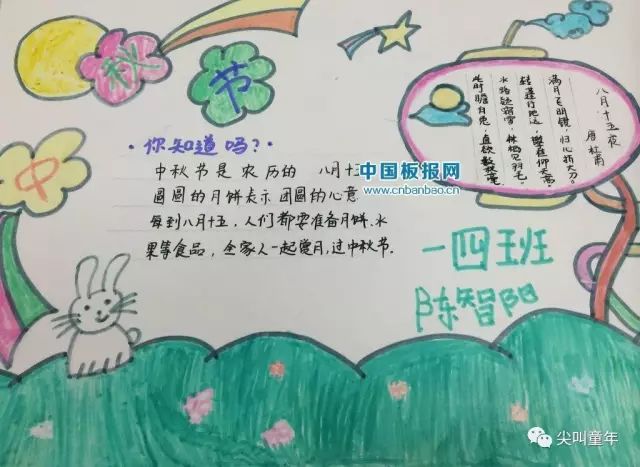 中秋节
·你知道吗？·
中秋节是农历的 八月十
圆圆的月饼表示团圆的心意
每到八月十五，人们都要准备月饼.水
果等食品，全家人一起赏月,过中秋节.
中国板报网
www.cnbanbao.cn
八月十五夜 唐 杜甫
满月飞明镜，归心折大刀。
转蓬行地远，攀桂仰天高。
水路疑霜雪，林栖见羽毛。
此时瞻白兔，直欲数秋毫。
一四班
陈智阳
尖叫童年